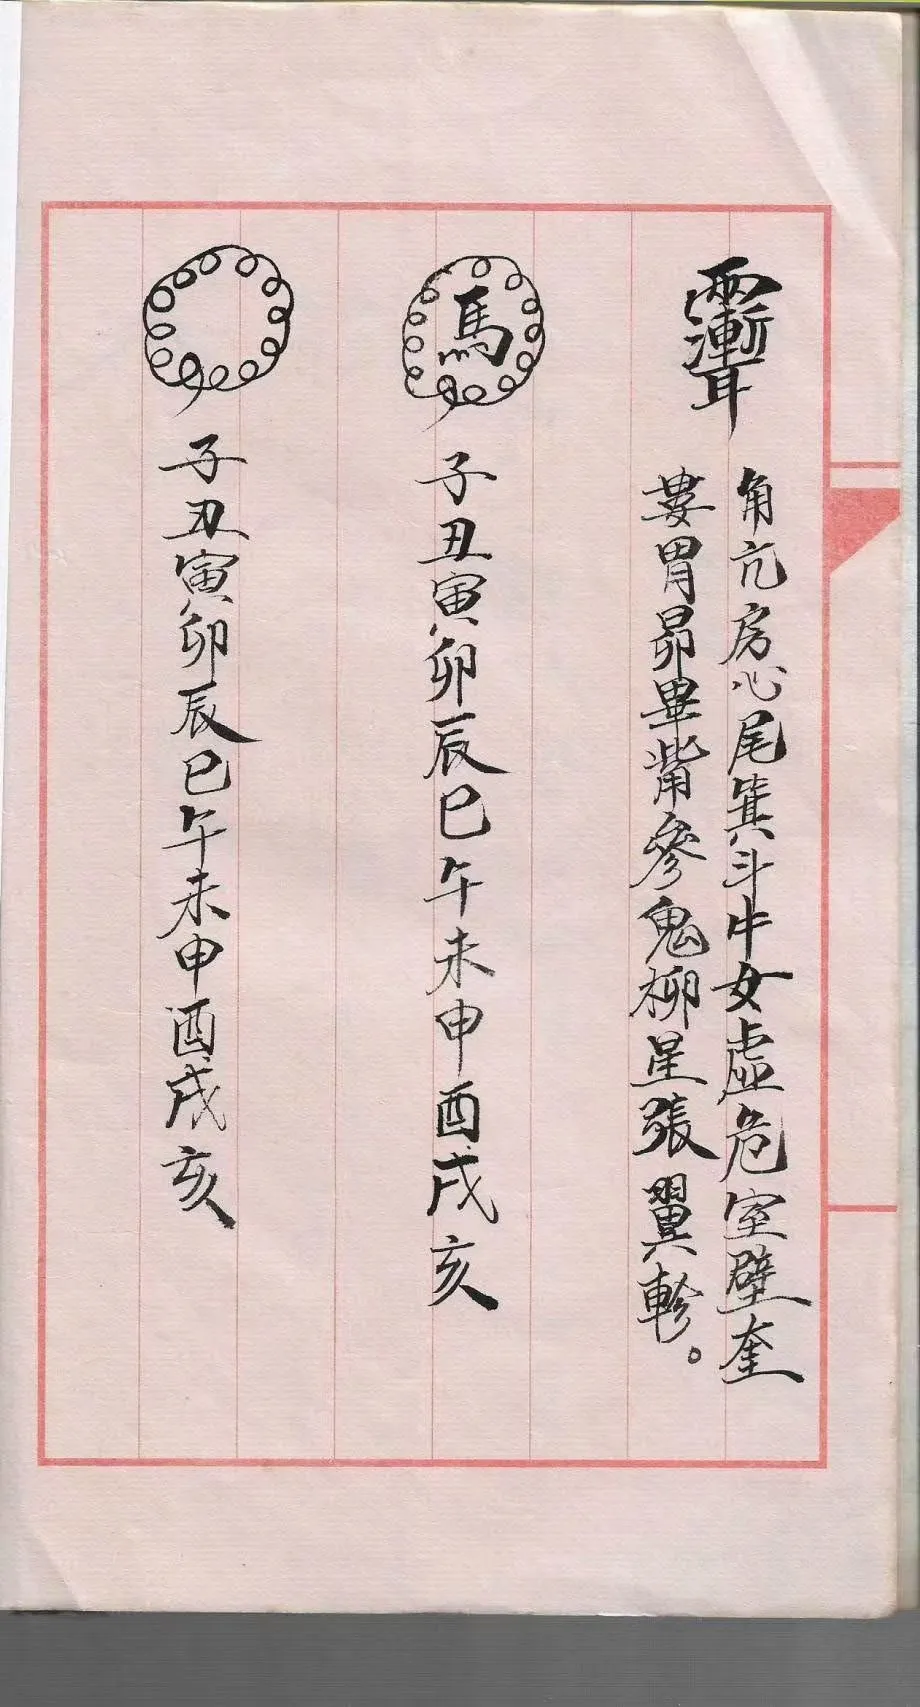 角亢房心尾箕斗牛女虛危室壁奎
婁胃昴畢觜參鬼柳星張翼軫。
馬
子丑寅卯辰巳午未申酉戌亥
子丑寅卯辰巳午未申酉戌亥